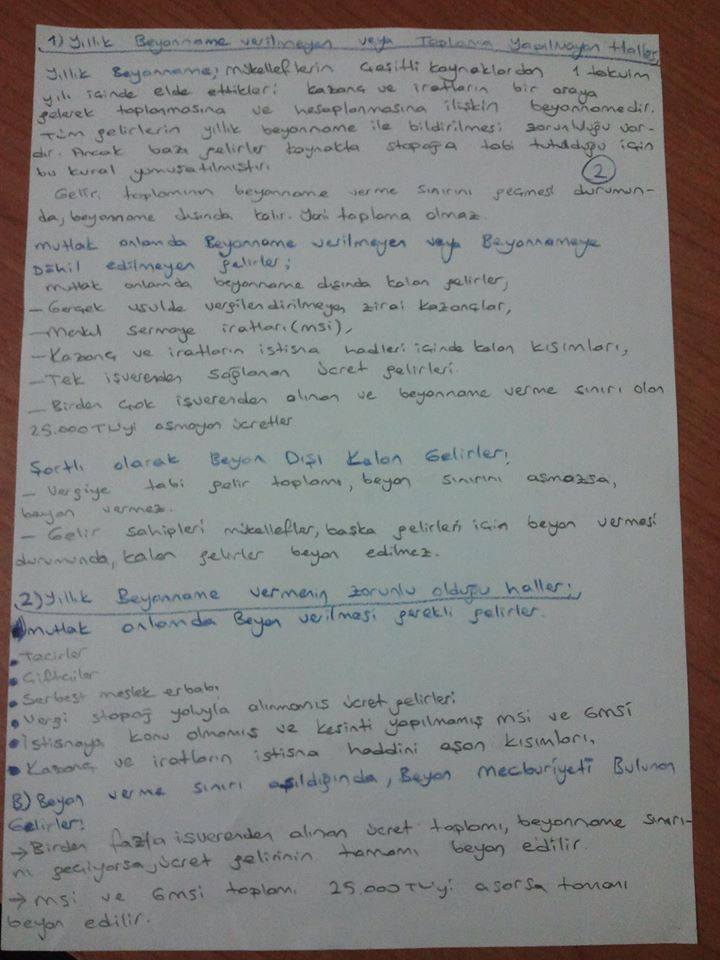 1) Yıllık Beyanname verilmeyen veya Toplama Yapılmayan Haller;
Yıllık Beyanname; mükelleflerin çeşitli kaynaklardan 1 takvim
yılı içinde elde ettikleri kazanç ve iratların bir araya
gelerek toplanmasına ve hesaplanmasına ilişkin beyannamedir.
Tüm gelirlerin yıllık beyanname ile bildirilmesi zorunluluğu var-
dır. Ancak bazı gelirler kaynakta stopağa tabi tutulduğu için
bu kural yumuşatılmıştır.
2
Gelir, toplamının beyanname verme sınırını geçmesi durumun-
da, beyanname dışında kalır. Yani toplama olmaz.
mutlak anlamda Beyanname verilmeyen veya Beyannameye
Dahil edilmeyen gelirler;
mutlak anlamda beyanname dışında kalan gelirler,
- Gerçek usulde vergilendirilmeyen zirai kazançlar,
- Menkul sermaye iratları (msi),
- Kazanç ve iratların istisna hadleri içinde kalan kısımları,
- Tek işverenden sağlanan ücret gelirleri.
- Birden çok işverenden alınan ve beyanname verme sınırı olan
25.000 TL'yi aşmayan ücretler
Şartlı olarak Beyan Dışı Kalan Gelirler;
- Vergiye tabi gelir toplamı, beyan sınırını aşmazsa,
beyan vermez.
- Gelir sahipleri mükellefler, başka gelirleri için beyan vermesi
durumunda, kalan gelirler beyan edilmez.
2) Yıllık Beyanname vermenin zorunlu olduğu haller;
mutlak anlamda Beyan verilmesi gerekli gelirler.
• Tacirler
• Çiftçiler
• Serbest meslek erbabı
• Vergi stopağ yoluyla alınmamış ücret gelirleri
• İstisnaya konu olmamış ve kesinti yapılmamış msi ve Gmsi
• Kazanç ve iratların istisna haddini aşan kısımları,
B) Beyan verme sınırı aşıldığında, Beyan Mecburiyeti Bulunan
Gelirler;
→ Birden fazla işverenden alınan ücret toplamı, beyanname sınırı-
nı geçiyorsa, ücret gelirinin tamamı beyan edilir.
→ msi ve Gmsi toplamı 25.000 TL'yi aşarsa tamamı
beyan edilir.